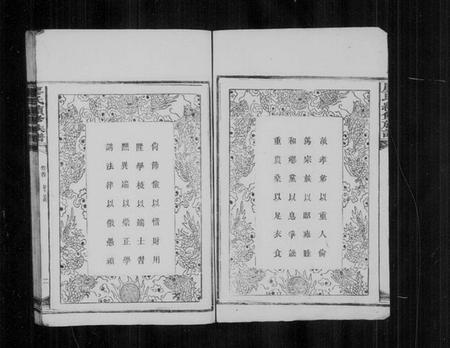 敦孝弟以重人倫
篤宗族以昭雍睦
和鄉黨以息爭訟
重農桑以足衣食
尚節儉以惜財用
隆學校以端士習
黜異端以崇正學
講法律以儆愚頑